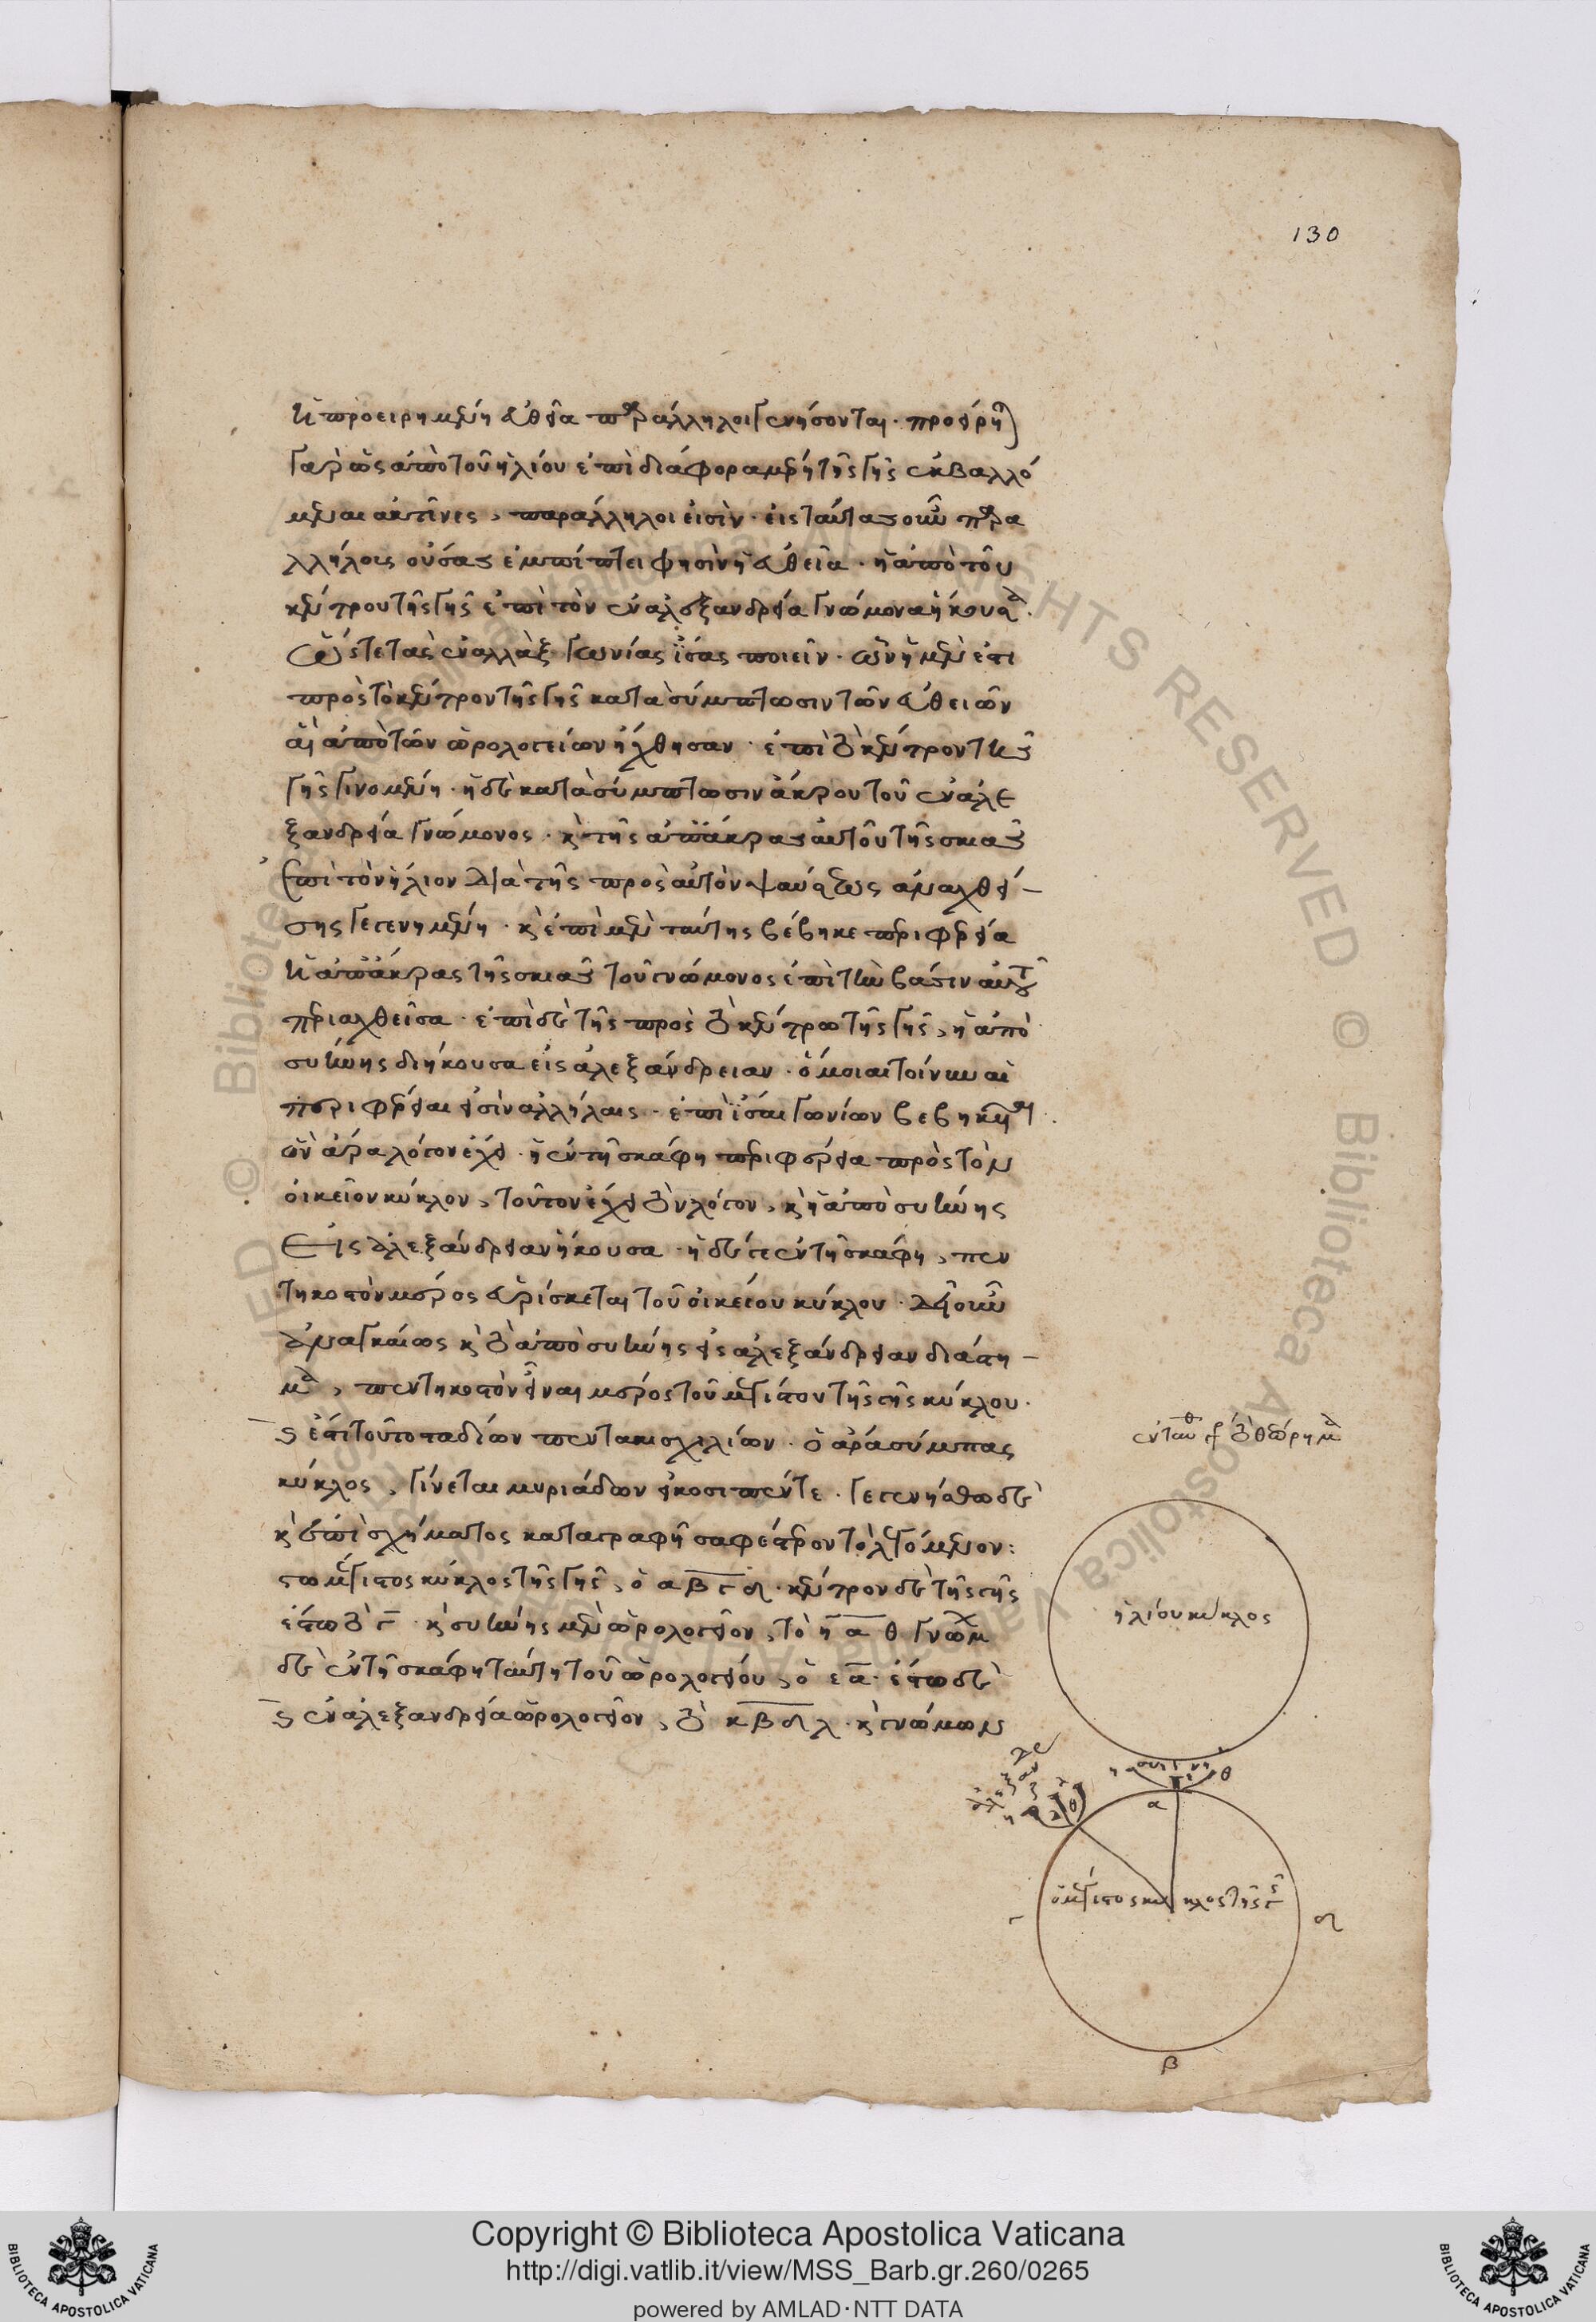 130
ἡ προειρημένη εὐθεῖα παράλληλοι γενήσονται · προείρηται
γὰρ ὡς ἀπὸ τοῦ ἡλίου ἐπὶ διάφορα μέρη τῆς γῆς ἐκβαλλό
μεναι ἀκτῖνες, παράλληλοι εἰσὶν · εἰς ταύτας οὖν παρα
λλήλους οὔσας ἐμπίπτει φησὶν ἡ εὐθεῖα · ἡ ἀπὸ τοῦ
κέντρου τῆς γῆς ἐπὶ τὸν ἐν ἀλεξανδρεία γνώμονα ἥκουσα.
ὥστε τὰς ἐναλλὰξ γωνίας ἴσας ποιεῖν · ὧν ἡ μὲν ἐστι
πρὸς τὸ κέντρον τῆς γῆς κατὰ σύμπτωσιν τῶν εὐθειῶν
αἳ ἀπὸ τῶν ὡρολογείων ἤχθησαν · ἐπὶ τὸ κέντρον τῆς
γῆς γινομένη · ἡ δὲ κατὰ σύμπτωσιν ἄκρου τοῦ ἐν ἀλε
ξανδρεία γνώμονος · καὶ τῆς ἀπ' ἄκρας αὐτοῦ τῆς σκιᾶς
ἐπὶ τὸν ἥλιον διὰ τῆς πρὸς αὐτὸν ψαύσεως ἀναχθεί-
σης γεγενημένη · καὶ ἐπὶ μὲν ταύτης βέβηκε περιφέρεια
ἡ ἀπ' ἄκρας τῆς σκιᾶς τοῦ γνώμονος ἐπὶ τὴν βάσιν αὐτοῦ
περιαχθεῖσα · ἐπὶ δὲ τῆς πρὸς τὸ κέντρω τῆς γῆς, ἡ ἀπὸ
συήνης διήκουσα εἰς ἀλεξάνδρειαν · ὅμοιαι τοίνυν αἱ
περιφέρειαι εἰσὶν ἀλλήλαις · ἐπὶ ἴσαι γωνίων βεβηκυῖαι.
ὃν ἄρα λόγον ἔχει · ἡ ἐν τῆ σκάφη περιφέρεια πρὸς τὸν
οἰκεῖον κύκλον, τοῦτον ἔχει τὸν λόγον, καὶ ἡ ἀπὸ συήνης
εἰς ἀλεξάνδρειαν ἥκουσα · ἡ δέ γε ἐν τῆ σκάφη, πεν
τηκοστὸν μέρος εὑρίσκεται τοῦ οἰκείου κύκλου · δεῖ οὖν
ἀναγκαίως καὶ τὸ ἀπὸ συήνης εἰς ἀλεξάνδρειαν διάστη-
μα, πεντηκοστὸν εἶναι μέρος τοῦ μεγίστου τῆς γῆς κύκλου.
καὶ ἐστι τοῦτο σταδίων πεντακισχιλίων · ὁ ἄρα σύμπας
κύκλος, γίνεται μυριάδων εἴκοσι πέντε · γεγενήσθω δὲ
καὶ ἐπὶ σχήματος καταγραφῆ σαφέστερον τὸ λεγόμενον:
ἔστω μέγιστος κύκλος τῆς γῆς, ὁ α β γ δ · κέντρον δὲ τῆς γῆς
ἔστω τὸ γ · καὶ συήνης μὲν ὡρολογεῖον, τὸ η α θ γνώμων
δὲ ἐν τῆ σκάφη ταύτη τοῦ ὡρολογείου, ὁ ε α · ἔστω δὲ
καὶ ἐν ἀλεξανδρεία ὡρολογεῖον, τὸ κ β δ λ · καὶ γνώμων
ἡλίου κύκλος
η
θ
α
ὁ μέγιστος κύκλος τῆς γῆς
γ
δ
β
Copyright © Biblioteca Apostolica Vaticana
http://digi.vatlib.it/view/MSS_Barb.gr.260/0265
powered by AMLAD·NTT DATA